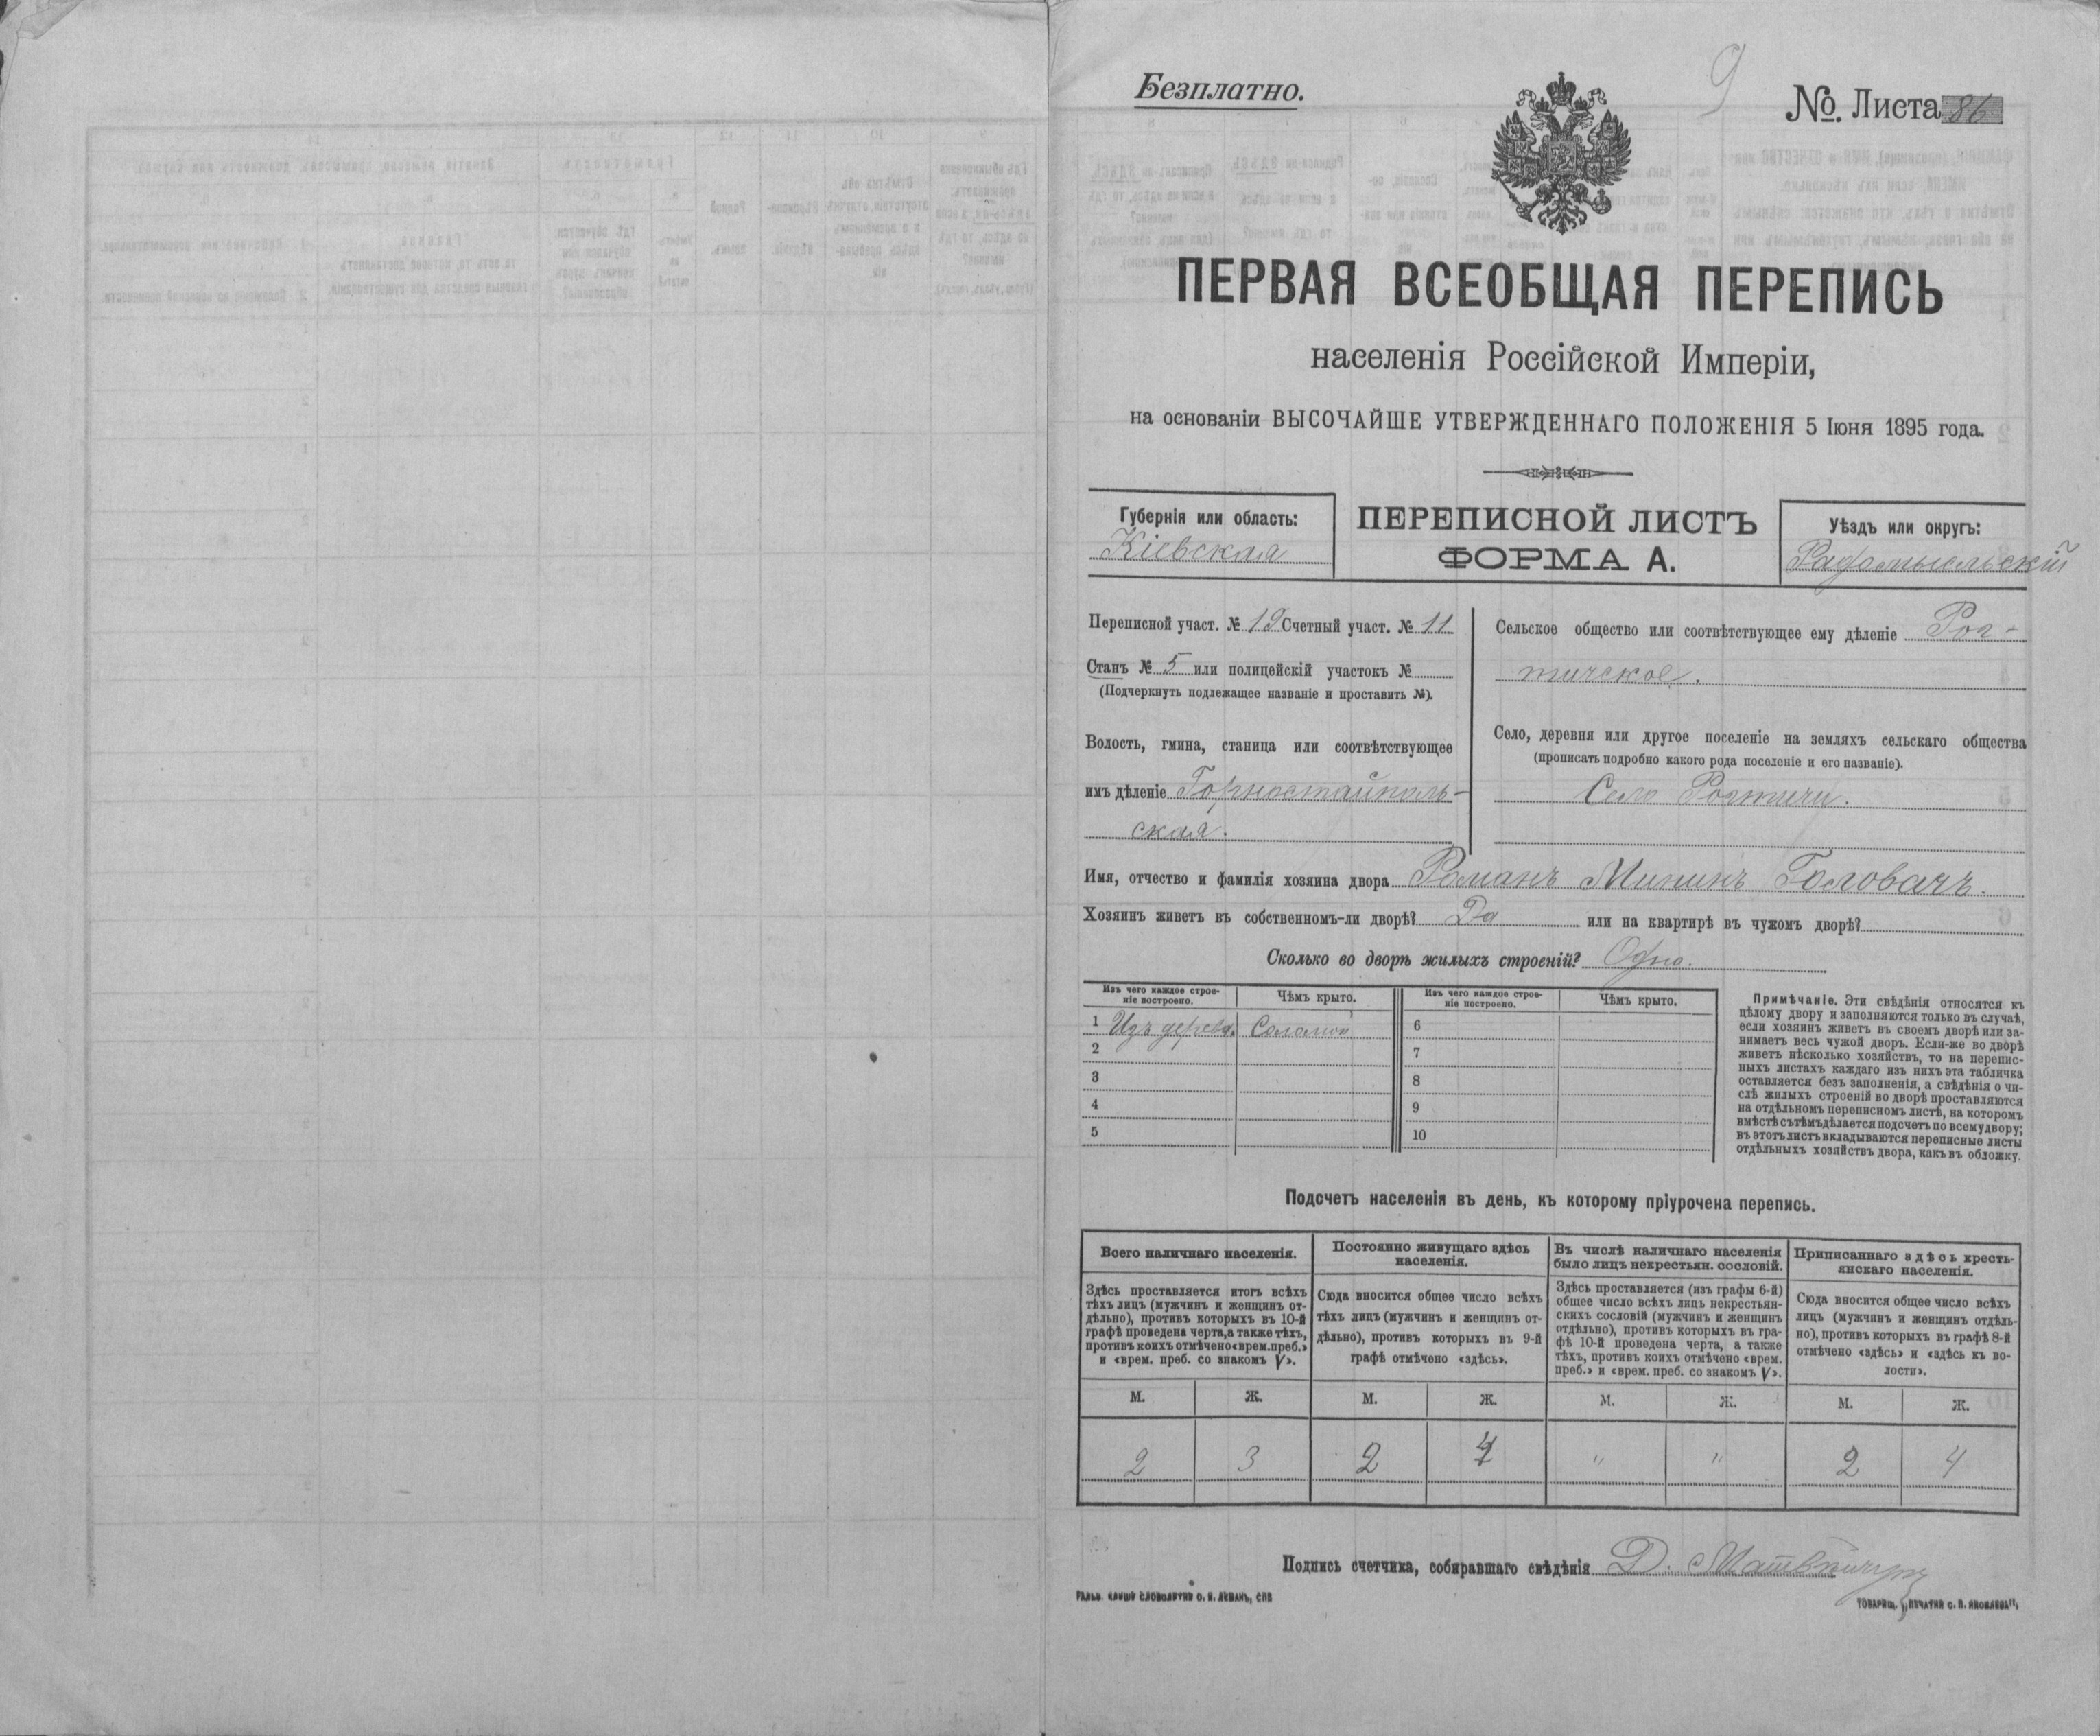 Безплатно.
9
№ Листа 86
ПЕРВАЯ ВСЕОБЩАЯ ПЕРЕПИСЬ
населенія Россійской Имперіи,
на основаніи ВЫСОЧАЙШЕ УТВЕРЖДЕННАГО ПОЛОЖЕНІЯ 5 Іюня 1895 года.
Губернія или область:
Кіевская
ПЕРЕПИСНОЙ ЛИСТЪ
ФОРМА А.
Уѣздъ или округъ:
Радомысльскій
Переписной участ. № 19 Счетный участ. № 11
Станъ № 5 или полицейскій участокъ №
(Подчеркнуть подлежащее названіе и проставить №).
Волость, гмина, станица или соотвѣтствующее
имъ дѣленіе Горностайполь-
ская.
Сельское общество или соотвѣтствующее ему дѣленіе
тичское.
Село, деревня или другое поселеніе на земляхъ сельскаго общества
(прописать подробно какого рода поселеніе и его названіе).
Село
Имя, отчество и фамилія хозяина двора Романъ Мининъ Головачъ.
Хозяинъ живетъ въ собственномъ-ли дворѣ? Да или на квартирѣ въ чужомъ дворѣ?
Сколько во дворѣ жилыхъ строеній? Одно.
Изъ чего каждое строе-
ніе построено.
Чѣмъ крыто.
Изъ чего каждое строе-
ніе построено.
Чѣмъ крыто.
1 Изъ дерева. Соломой
2
3
4
5
6
7
8
9
10
Примѣчаніе. Эти свѣдѣнія относятся къ
цѣлому двору и заполняются только въ случаѣ,
если хозяинъ живетъ въ своемъ дворѣ или за-
нимаетъ весь чужой дворъ. Если-же во дворѣ
живетъ нѣсколько хозяйствъ, то на перепис-
ныхъ листахъ каждаго изъ нихъ эта табличка
оставляется безъ заполненія, а свѣдѣнія о чи-
слѣ жилыхъ строеній во дворѣ проставляются
на отдѣльномъ переписномъ листѣ, на которомъ
вмѣстѣ съ тѣмъ дѣлается подсчетъ по всему двору;
въ этотъ листъ вкладываются переписные листы
отдѣльныхъ хозяйствъ двора, какъ въ обложку.
Подсчетъ населенія въ день, къ которому пріурочена перепись.
Всего наличнаго населенія.
Здѣсь проставляется итогъ всѣхъ
тѣхъ лицъ (мужчинъ и женщинъ от-
дѣльно), противъ которыхъ въ 10-й
графѣ проведена черта, а также тѣхъ,
противъ коихъ отмѣчено «врем. преб.»
и «врем. преб. со знакомъ V».
Постоянно живущаго здѣсь
населенія.
Сюда вносится общее число всѣхъ
тѣхъ лицъ (мужчинъ и женщинъ от-
дѣльно), противъ которыхъ въ 9-й
графѣ отмѣчено «здѣсь».
Въ числѣ наличнаго населенія
было лицъ некрестьян. сословій.
Здѣсь проставляется (изъ графы 6-й)
общее число всѣхъ лицъ некрестьян-
скихъ сословій (мужчинъ и женщинъ
отдѣльно), противъ которыхъ въ гра-
фѣ 10-й проведена черта, а также
тѣхъ, противъ коихъ отмѣчено «врем.
преб.» и «врем. преб. со знакомъ V».
Приписаннаго здѣсь кресть-
янскаго населенія.
Сюда вносится общее число всѣхъ
лицъ (мужчинъ и женщинъ отдѣль-
но), противъ которыхъ въ графѣ 8-й
отмѣчено «здѣсь» и «здѣсь къ во-
лости».
М. Ж. М. Ж. М. Ж. М. Ж.
2 3 2 4 " " 2 4
Подпись счетчика, собиравшаго свѣдѣнія Д.
ГАЛЬВ. КЛИШЕ СЛОВОЛИТНИ О. И. ЛЕМАНЪ, СПБ
ТОВАРИЩ. „ПЕЧАТНЯ С. П. ЯКОВЛЕВА",